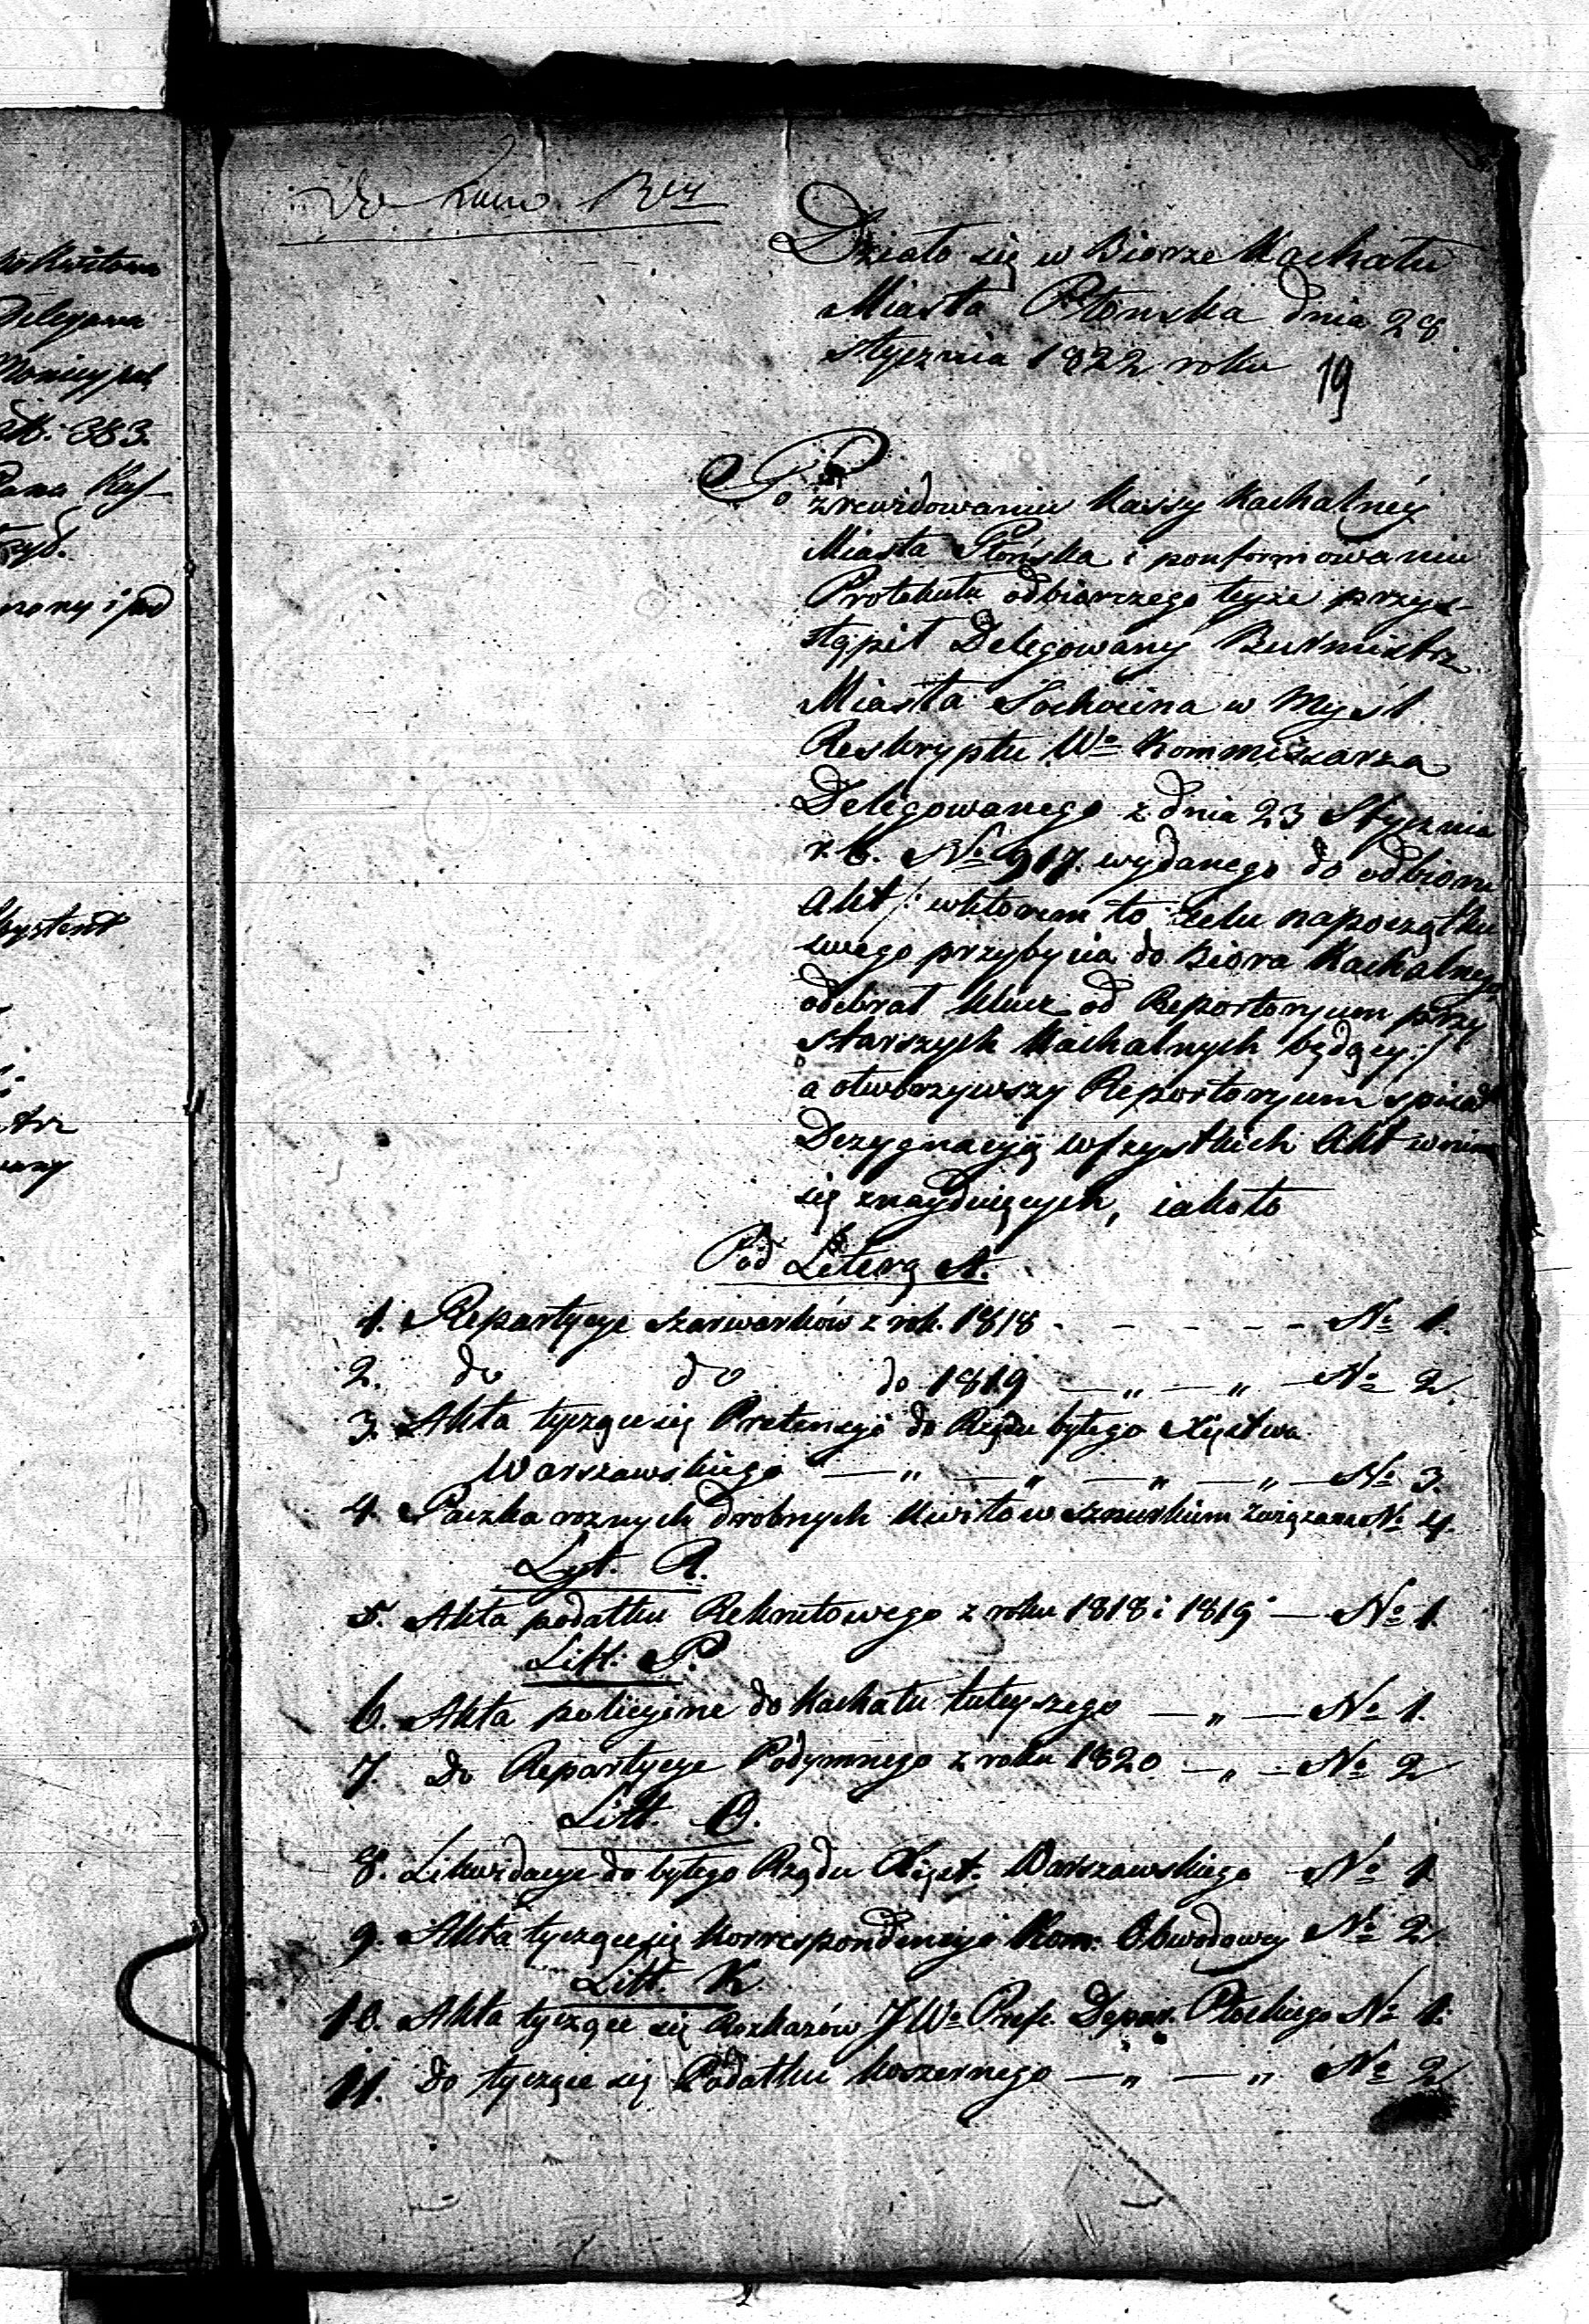 Do Kom Rz
Działo się w Biorze Kachału
Miasta Płońska dnia 28
stycznia 1822 roku
19
Po zrewidowaniu Kassy Kachalnéy
Miasta Płońska i pouformowaniu
Protokułu odbiorczego teyże przys-
stąpił Delegowany Burmistrz
Miasta Sochocina w Myśl
Reskryptu Wo Kommissarza
Delegowanego z dnia 23 Stycznia
r. b. No 917. wydanego do odbioru
Akt /: wktorem to celu napoczątku
swego przybycia do Biora Kachalnego
odebrał klucz od Reportoryum przy
starszych Kachalnych będący :/
a otworzywszy Reportoryum spisał
Dezygnacyą wszystkich Akt wnim
się znayduięcych, iakoto
Pod Literą A.
1. Repartycye szarwarków z rok. 1818 - - - - - No 1.
2. do do do 1819 — „ — „ — No 2
3. Akta tyczące się Pretensyi do Rządu byłego Xięstwa
Warszawskiego — „ — „ — „ — „ — No 3.
4. Paczka roznych drobnych kwitów sznurkiem związana No 4.
Lyt. R.
5. Akta podatku Rekrutowego z roku 1818 i 1819 — No 1.
Litt: P.
6. Akta policyine do Kachału tuteyszego — „ — No 1.
7. do Repartycye Podymnego z roku 1820 — „ — No 2
Litt. O.
8. Likwidacye do byłego Rządu Xięst. Warszawskiego — No 1
9. Akta tyczące się Korrespondencyi Kom: Obwodowey No 2
Litt. K.
10. Akta tyczące się Rozkazów JWo Prefe. Depar. Płockiego No 1.
11. do tyczące się Podatku koszernego — „ — „ No 2